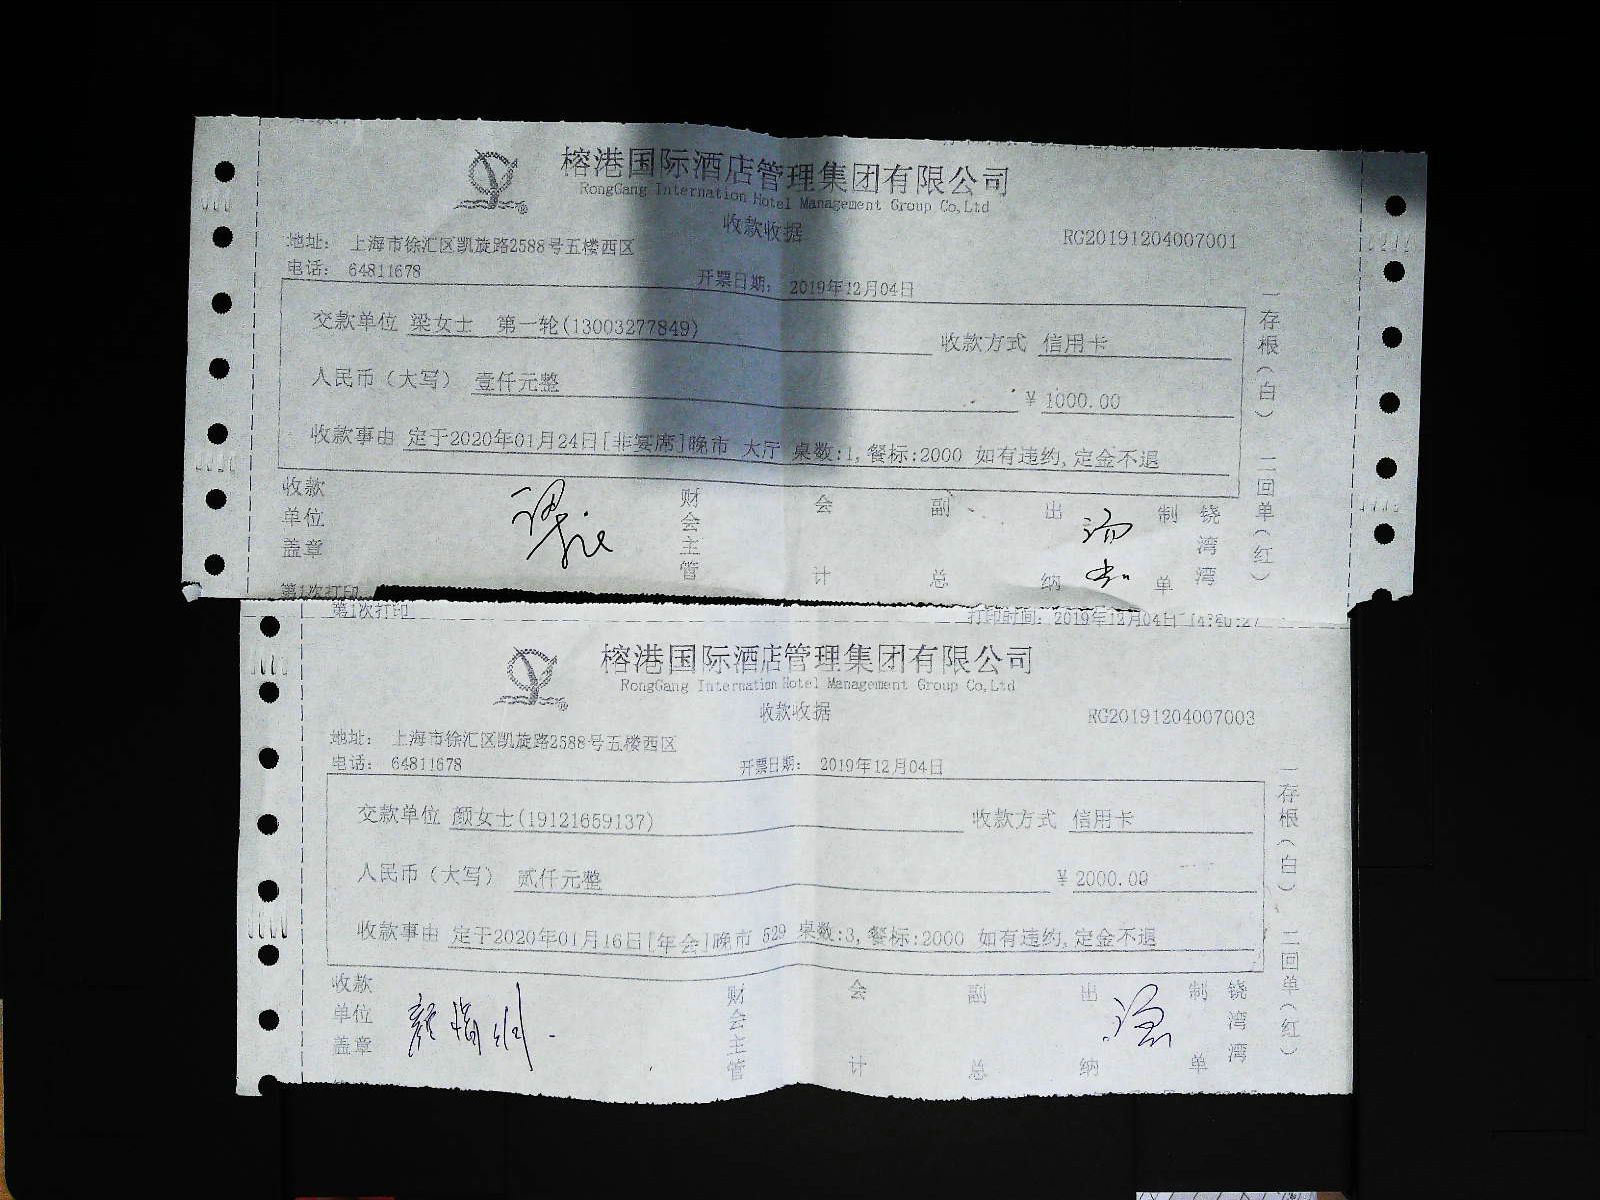 榕港国际酒店管理集团有限公司
RongGang Internation Hotel Management Group Co,Ltd
收款收据
RG20191204007001
地址： 上海市徐汇区凯旋路2588号五楼西区
电话： 64811678
开票日期： 2019年12月04日
交款单位 梁女士 第一轮(13003277849)
收款方式 信用卡
人民币（大写） 壹仟元整
¥ 1000.00
收款事由 定于2020年01月24日[非宴席]晚市 大厅 桌数:1,餐标:2000 如有违约,定金不退
一存根（白） 二回单（红）
收款单位盖章
财会主管
会计
副总
出纳
制单
饶湾湾
第1次打印
第1次打印
打印时间： 2019年12月04日 14:40:27
榕港国际酒店管理集团有限公司
RongGang Internation Hotel Management Group Co,Ltd
收款收据
RG20191204007003
地址： 上海市徐汇区凯旋路2588号五楼西区
电话： 64811678
开票日期： 2019年12月04日
交款单位 颜女士(19121659137)
收款方式 信用卡
人民币（大写） 贰仟元整
¥ 2000.00
收款事由 定于2020年01月16日[年会]晚市 529 桌数:3,餐标:2000 如有违约,定金不退
一存根（白） 二回单（红）
收款单位盖章
财会主管
会计
副总
出纳
制单
饶湾湾